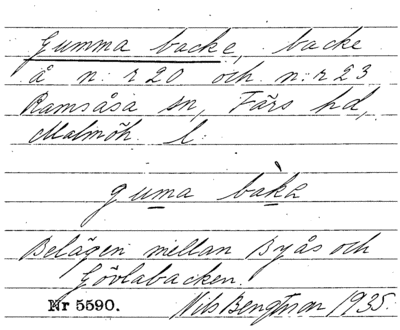 Gumma backe, backe
å n:r 20 och n:r 23
Ramsåsa sn, Färs hd,
Malmöh. l.
guma bàka
Belägen mellan Byås och
Gövlabacken.
Nr 5590. Nils Bengtson 1935.